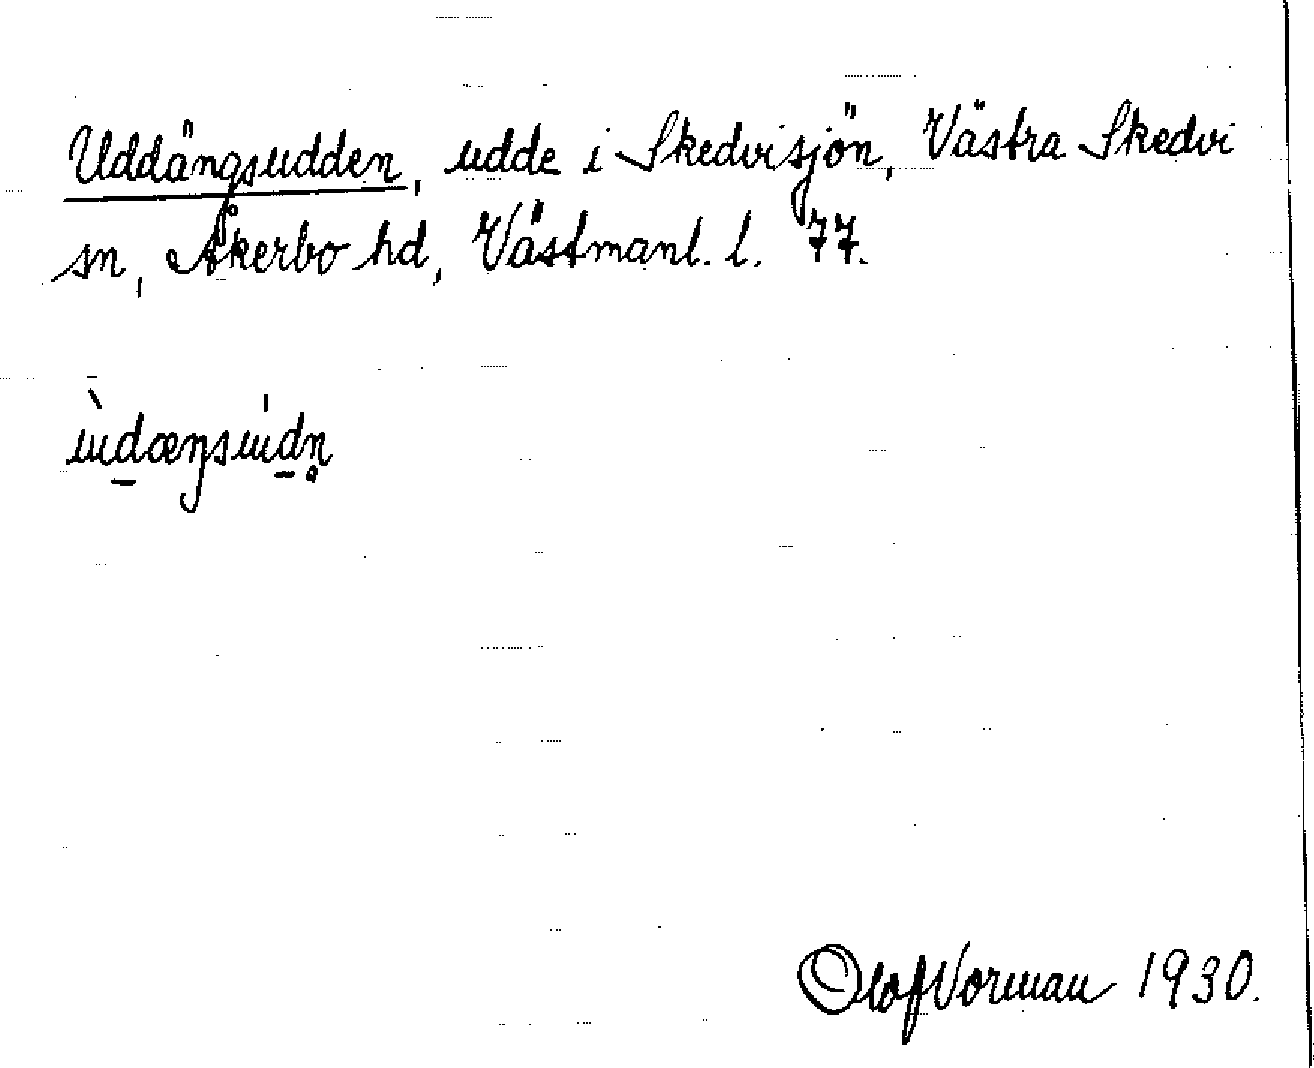 Uddängsudden, udde i Skedvisjön, Västra Skedvi
sn, Åkerbo hd, Västmanl. l. 77.
ɯ̀d̲æŋsɯ́d̲n̥
Olof Vorman 1930.